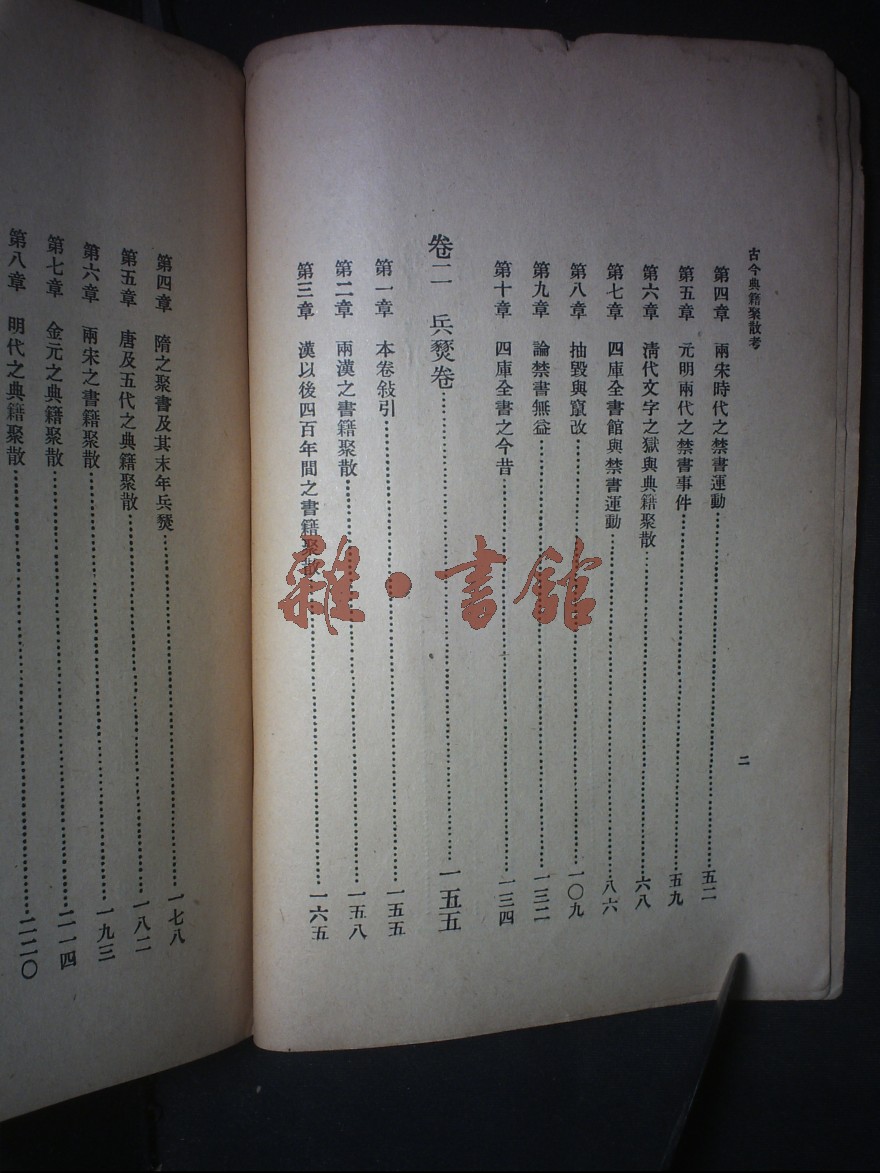 古今典籍聚散考
二
第四章 兩宋時代之禁書運動……五二
第五章 元明兩代之禁書事件……五九
第六章 清代文字之獄與典籍聚散……六八
第七章 四庫全書館與禁書運動……八六
第八章 抽毀與竄改……一〇九
第九章 論禁書無益……一三二
第十章 四庫全書之今昔……一三四
卷二 兵燹卷……一五五
第一章 本卷敍引……一五五
第二章 兩漢之書籍聚散……一五八
第三章 漢以後四百年間之書籍聚散……一六五
第四章 隋之聚書及其末年兵燹……一七八
第五章 唐及五代之典籍聚散……一八二
第六章 兩宋之書籍聚散……一九三
第七章 金元之典籍聚散……二一四
第八章 明代之典籍聚散……二二〇
雜·書館